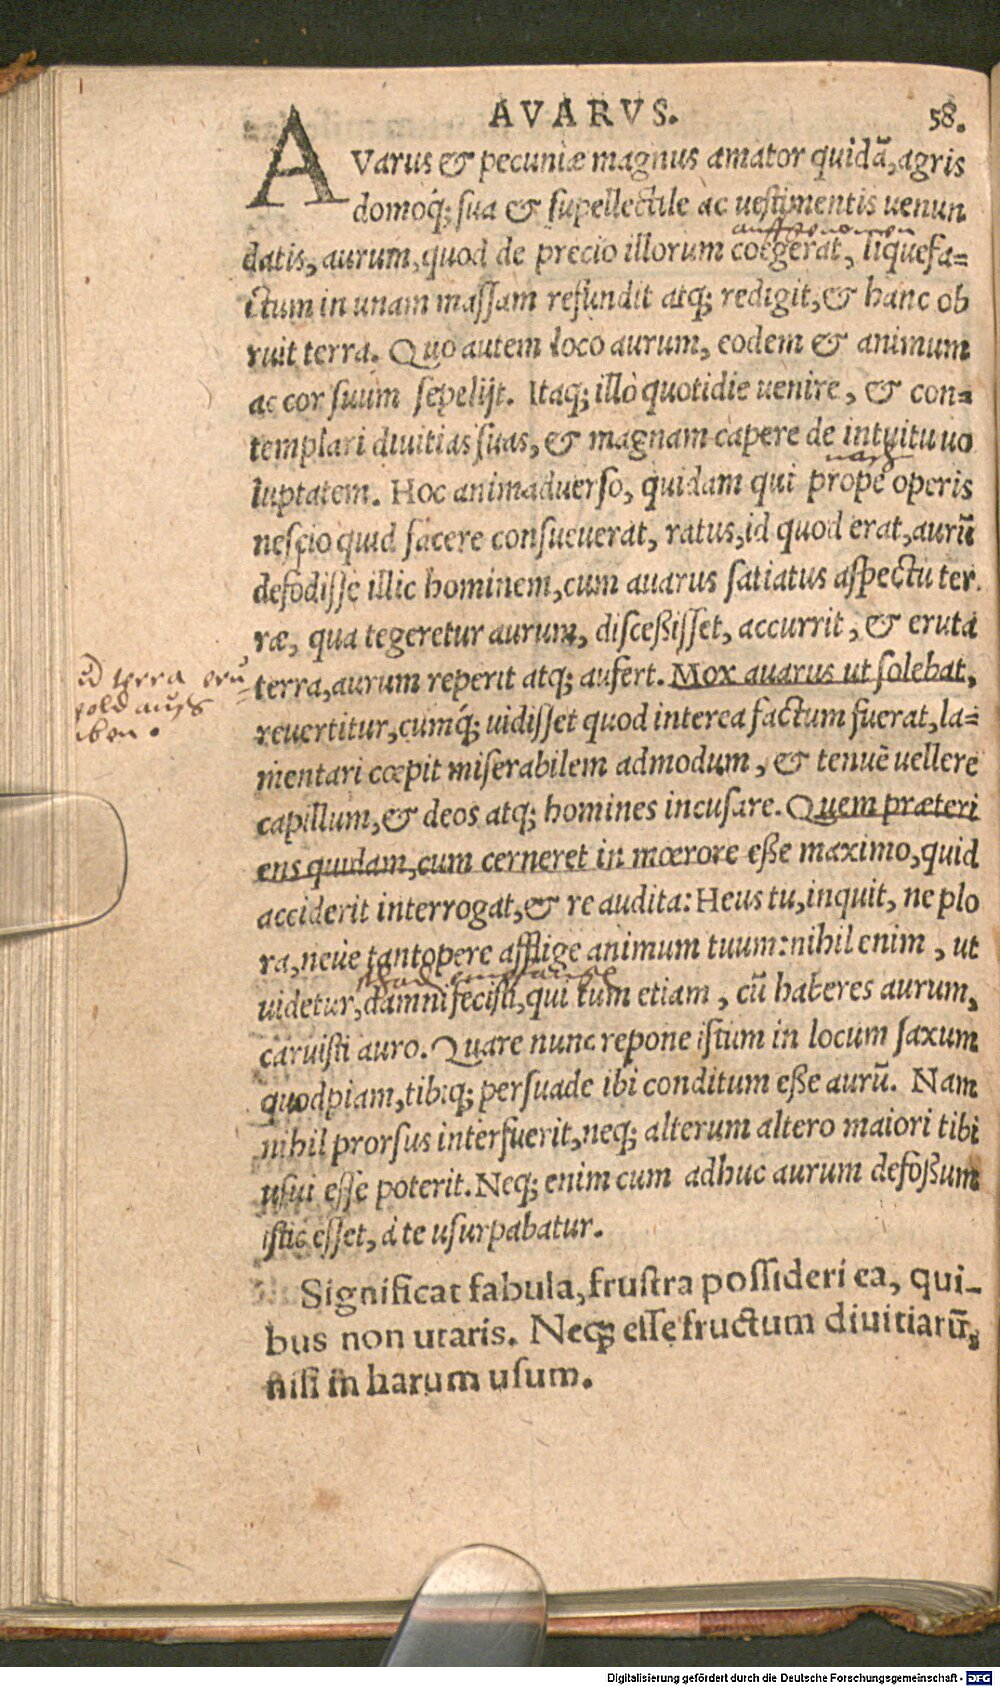 AVARVS. 58.
AVarus & pecuniæ magnus amator quidā, agris
domoq́; sua & supellectile ac uestimentis uenun
datis, aurum, quod de precio illorum coegerat, liquefa=
ctum in unam maſſam refundit atq; redigit, & hanc ob
ruit terra. Quo autem loco aurum, eodem & animum
ac cor ſuum ſepelijt. Itaq; illò quotidie uenire, & con=
templari diuitias ſuas, & magnam capere de intuitu uo
luptatem. Hoc animaduerſo, quidam qui prope operis
neſcio quid facere conſueuerat, ratus, id quod erat, aurū
defodiſſe illic hominem, cum auarus ſatiatus aſpectu ter
ræ, qua tegeretur aurum, diſceßiſſet, accurrit, & eruta
terra, aurum reperit atq; aufert. Mox auarus ut ſolebat,
reuertitur, cumq́; uidiſſet quod interea factum fuerat, la=
mentari cœpit miſerabilem admodum, & tenuē uellere
capillum, & deos atq; homines incuſare. Quem præteri
ens quidam, cum cerneret in mœrore eße maximo, quid
acciderit interrogat, & re audita: Heus tu, inquit, ne plo
ra, neue tantopere afflige animum tuum: nihil enim, ut
uidetur, damni feciſti, qui tum etiam, cū haberes aurum,
caruiſti auro. Quare nunc repone iſtum in locum ſaxum
quodpiam, tibiq; perſuade ibi conditum eße aurū. Nam
nihil prorſus interfuerit, neq; alterum altero maiori tibi
uſui eſſe poterit. Neq; enim cum adhuc aurum defoßum
iſtic eſſet, à te uſurpabatur.
Significat fabula, fruſtra poſſideri ea, qui-
bus non utaris. Neq; eſſe fructum diuitiarū,
niſi in harum uſum.
terra
gold
Digitalisierung gefördert durch die Deutsche Forschungsgemeinschaft - DFG